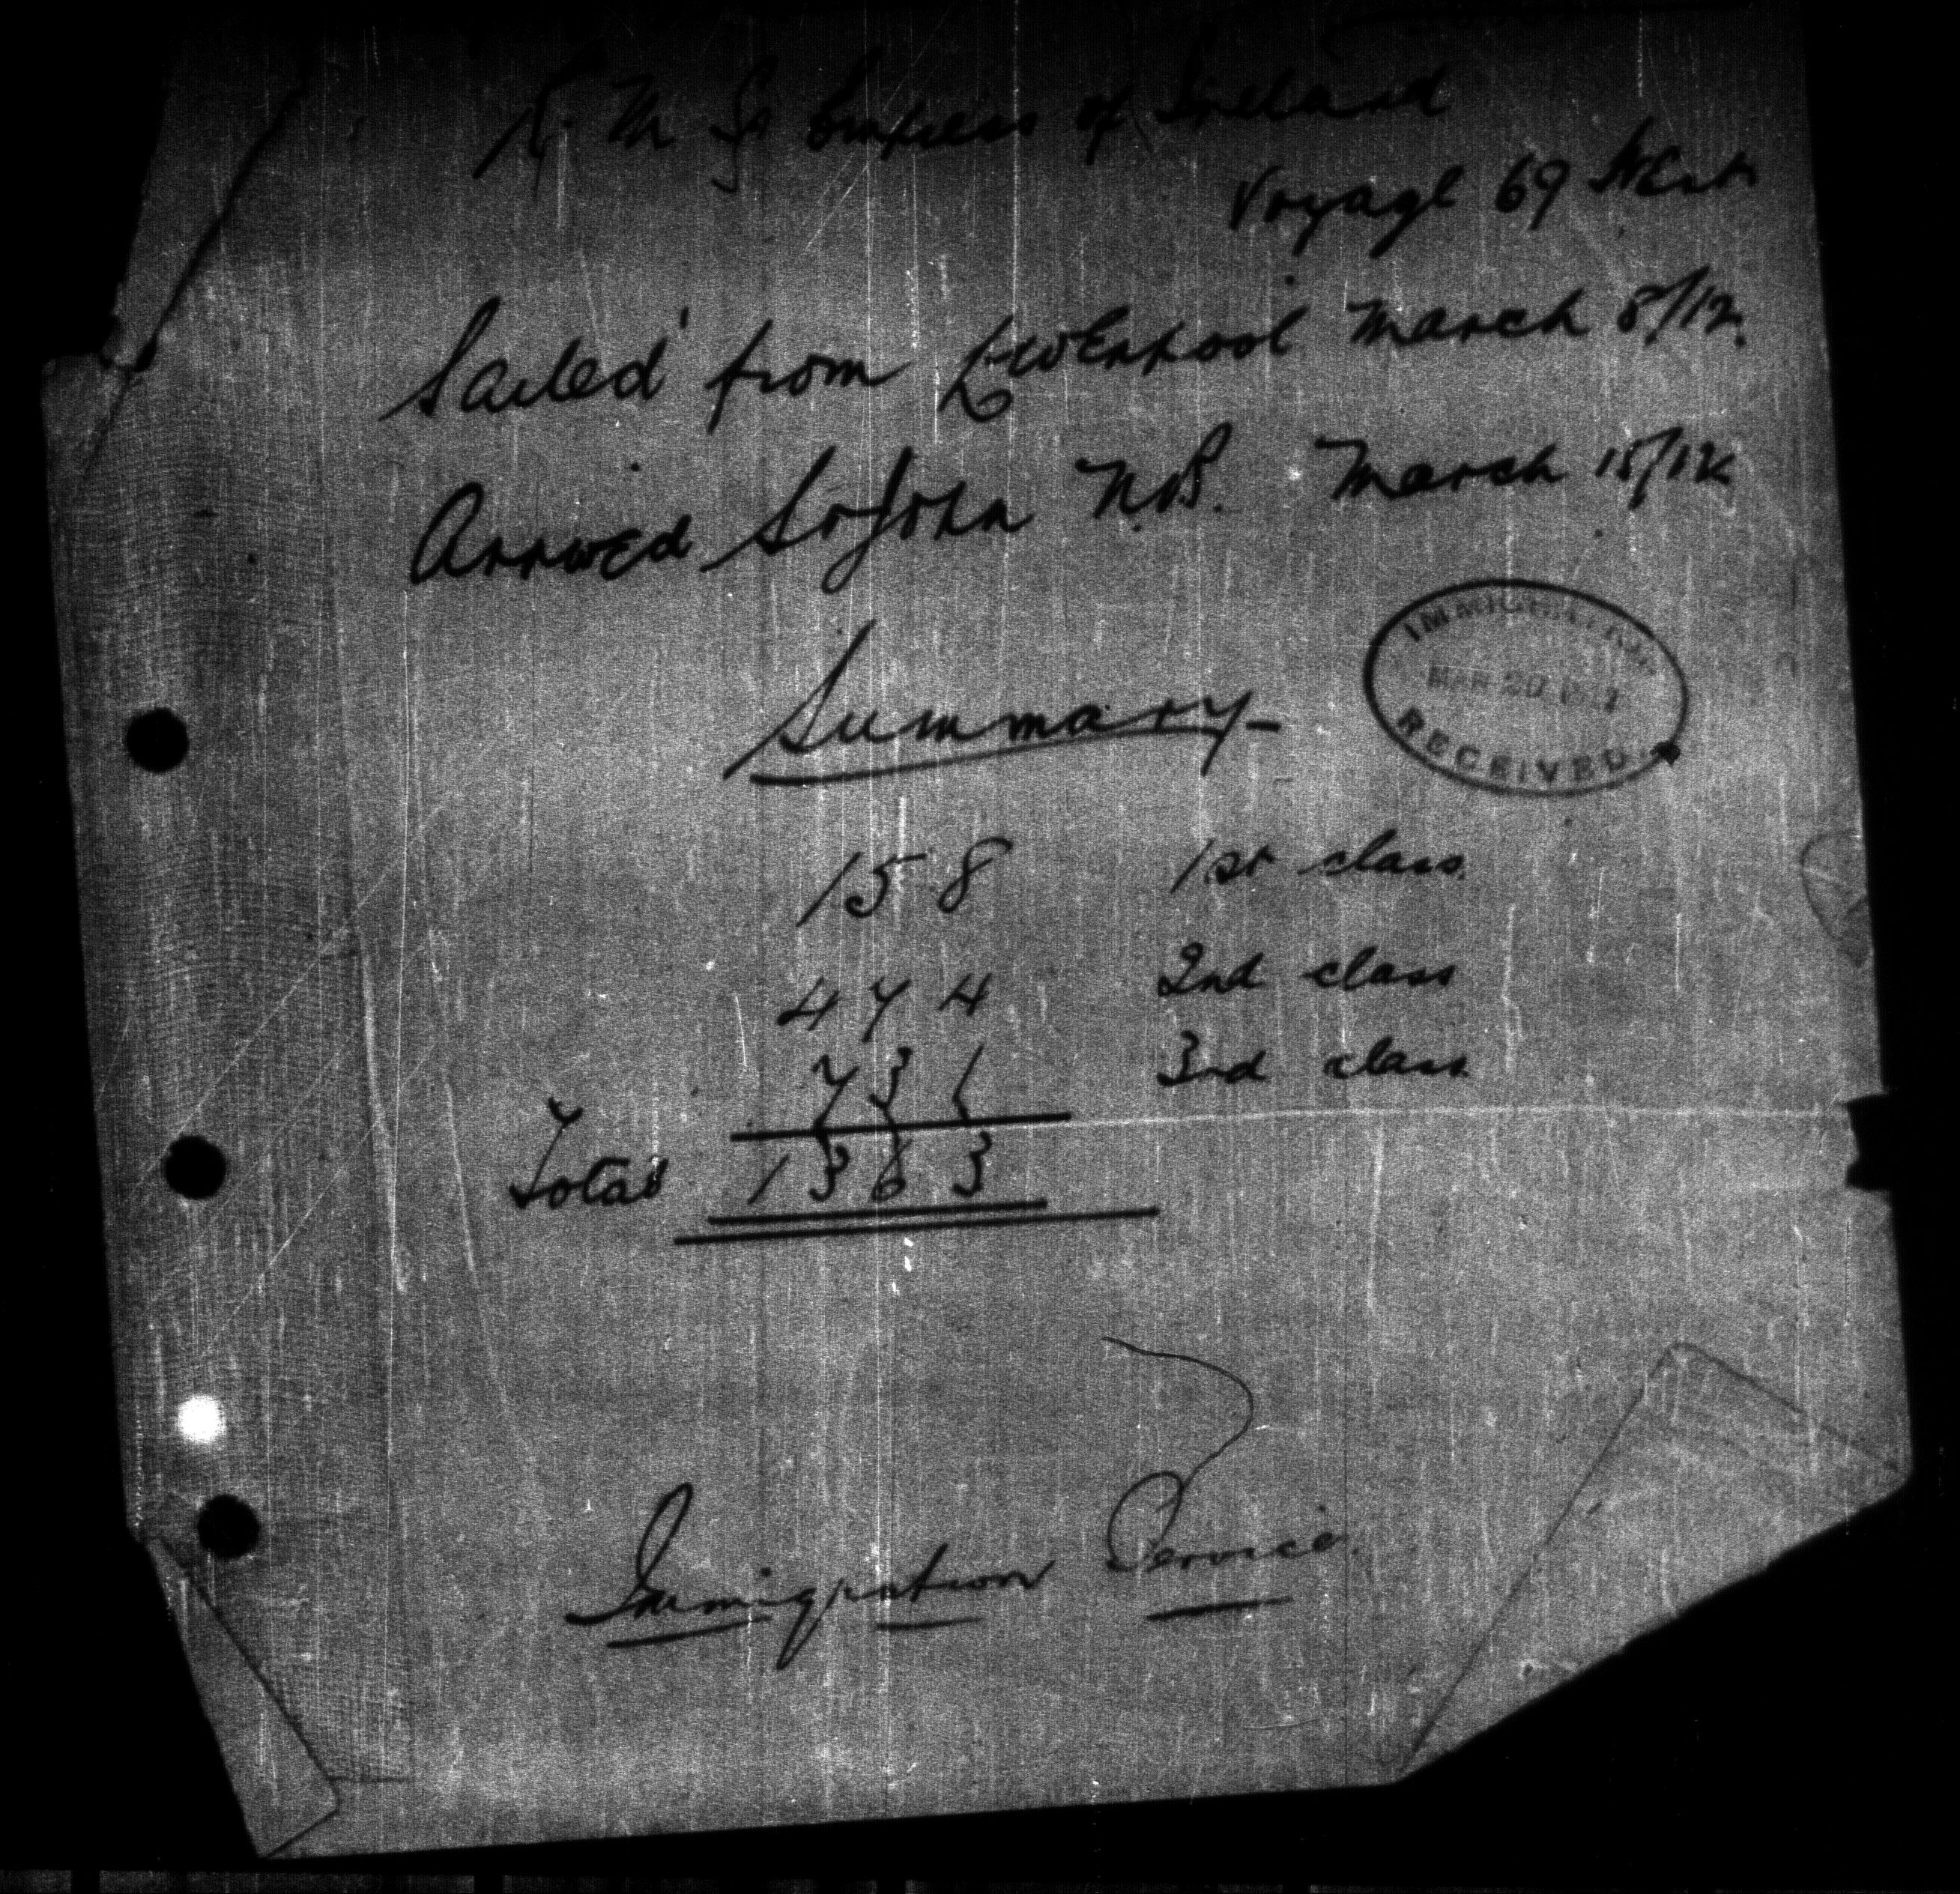 R. M. S. Empress of Ireland
Voyage 69 West
Sailed from Liverpool March 8/12.
Arrived St John N.B. March 15/12
IMMIGRATION
MAR 20 1912
RECEIVED
Summary
158 1st class.
474 2nd class
731 3rd class
Total 1363
Immigration Service.